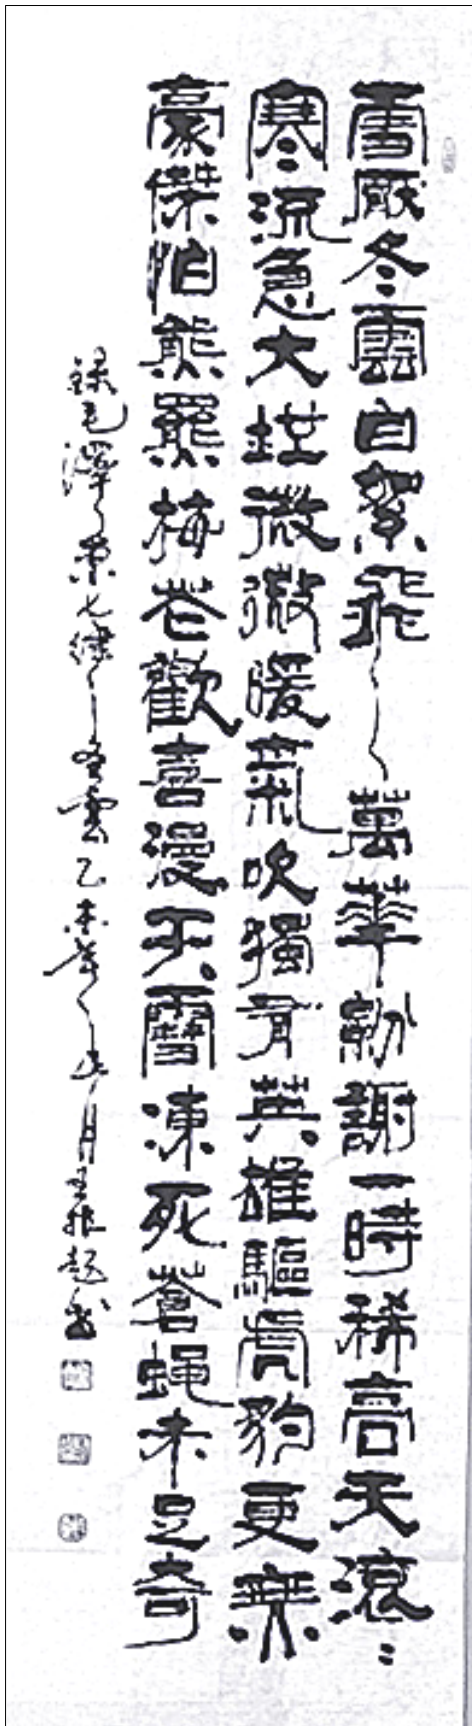 雪厭冬雲白絮飛萬華紛謝一時稀高天滾〻
寒流急大地微微暖氣吹獨有英雄驅虎豹更無
豪傑怕熊羆梅花歡喜漫天雪凍死蒼蠅未足奇
錄毛澤東七律冬雲乙未年月王振起書